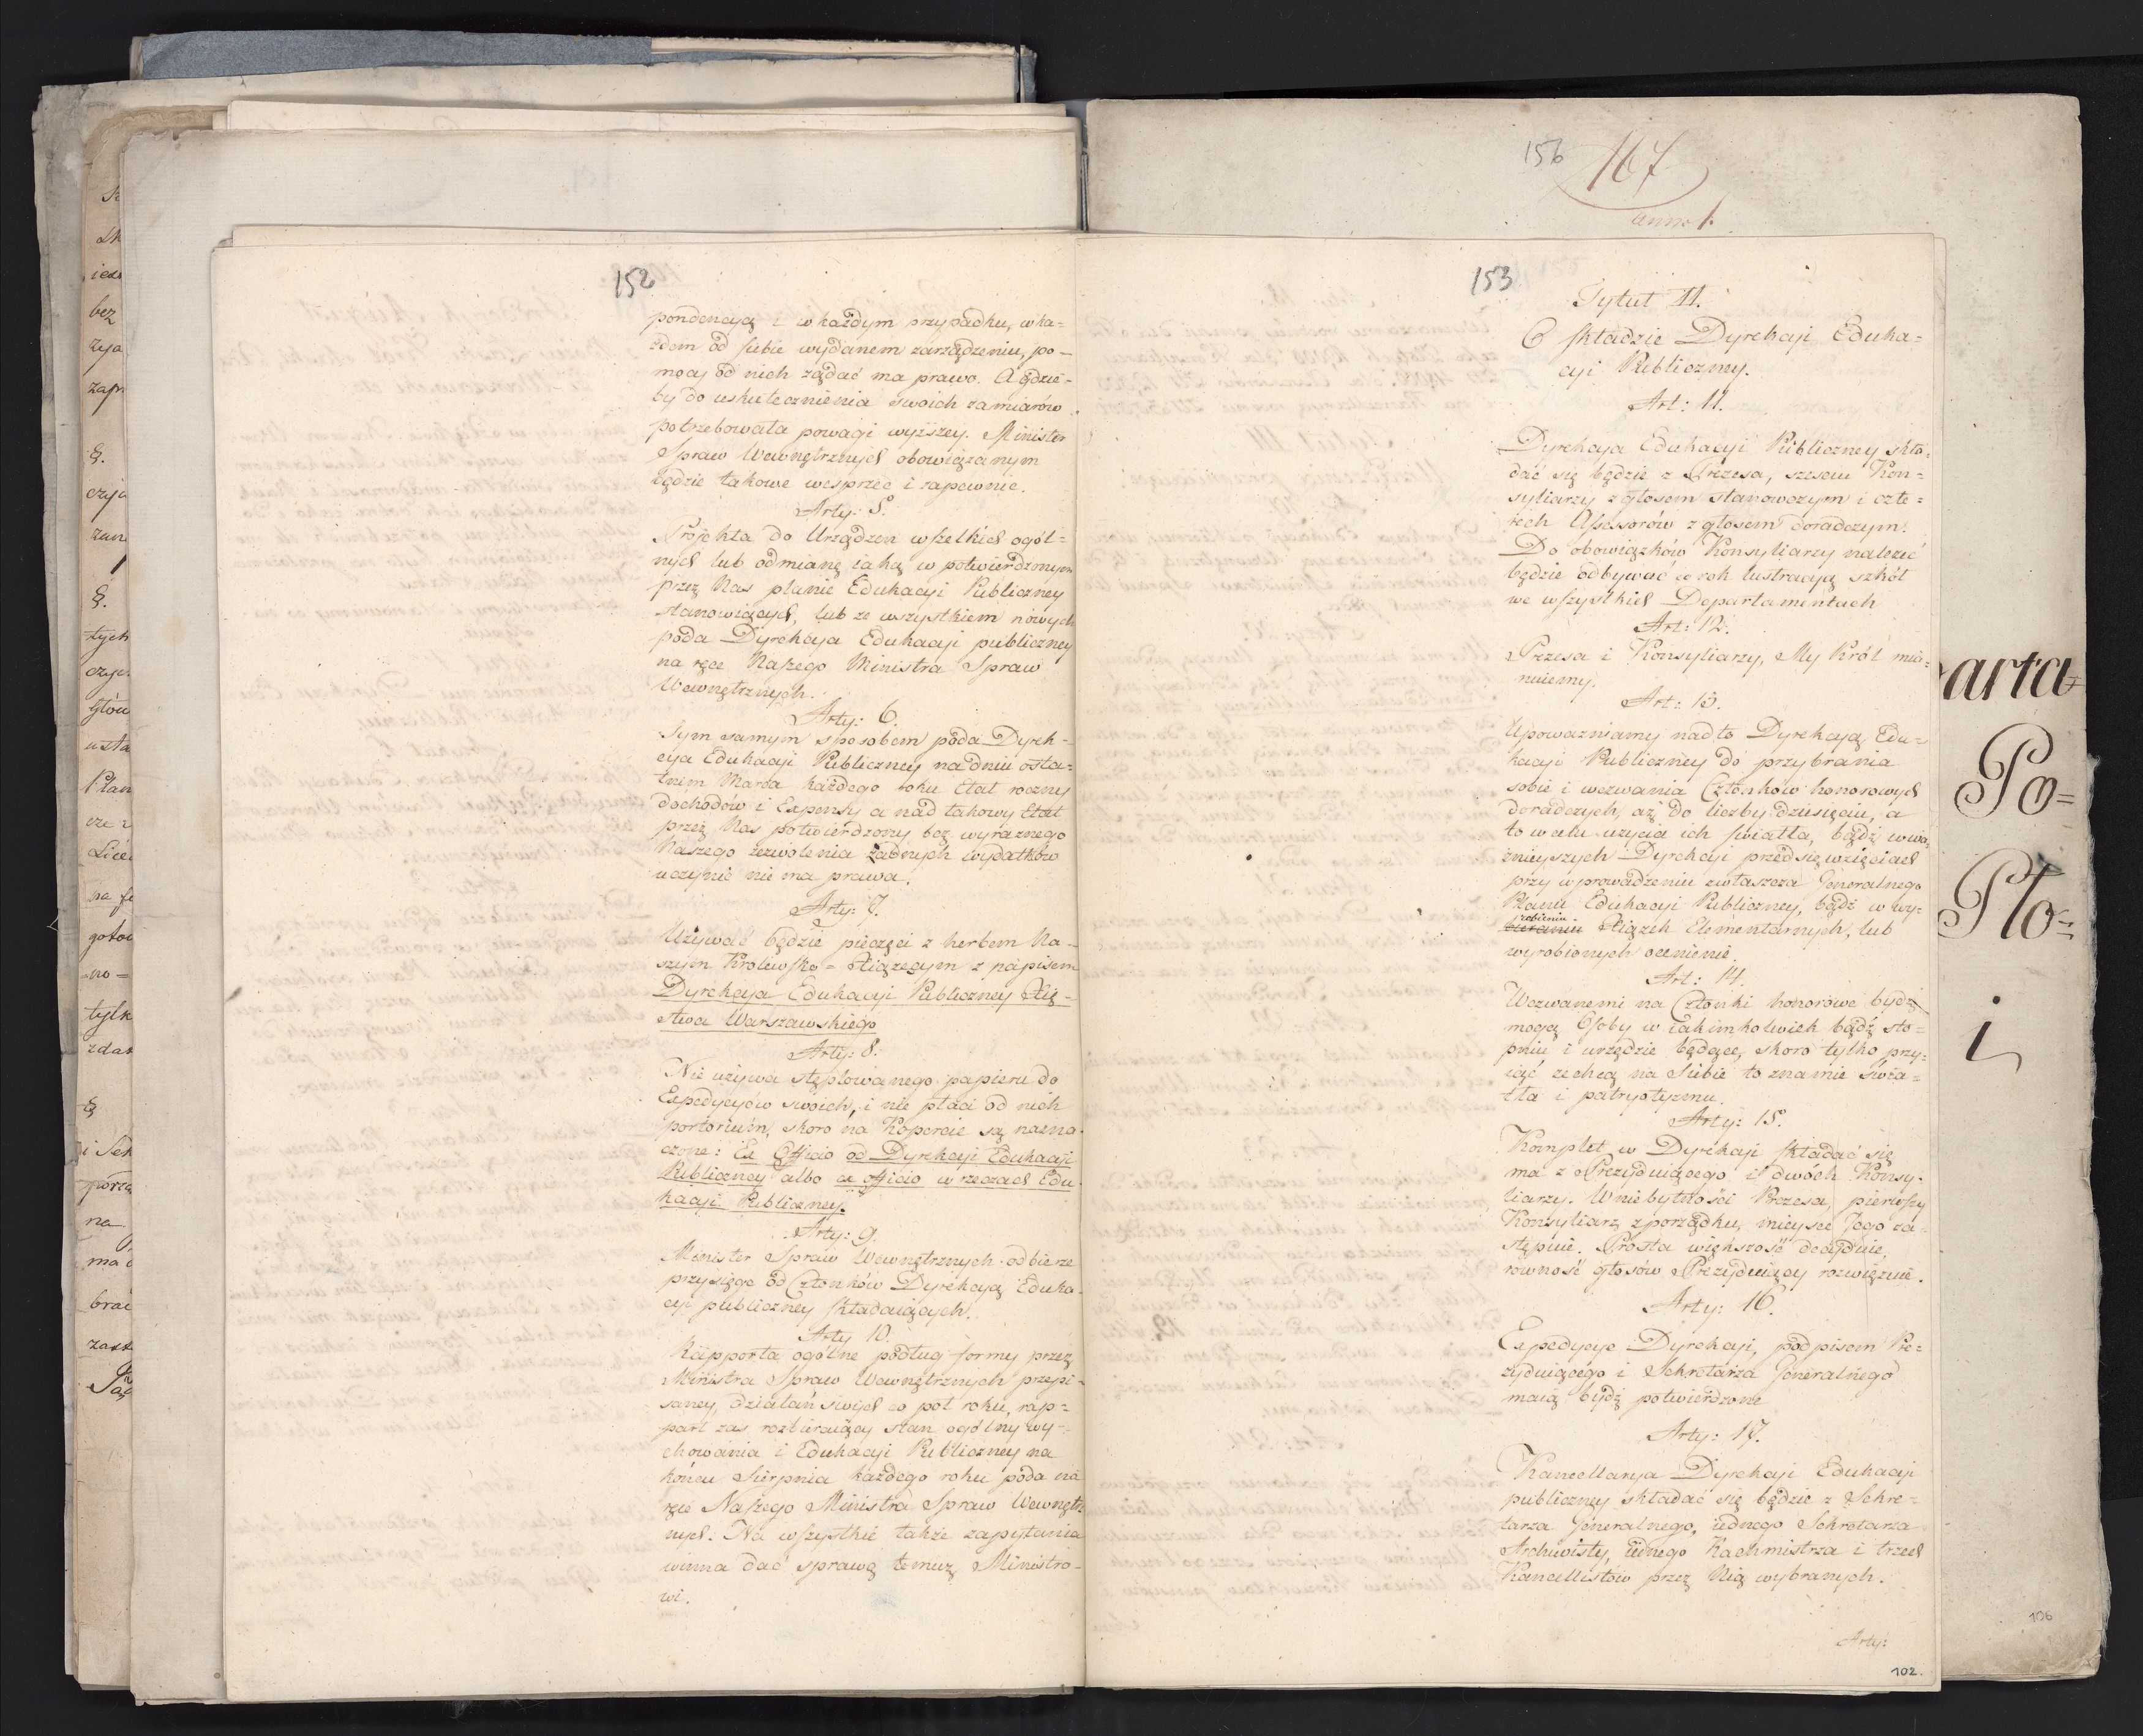 152
pondencyą i w każdym przypadku, w ka=
żdem od siebie wydanem zarządzeniu, po=
mocy od nich żądać ma prawo. A gdzie=
by do uskutecznienia swoich zamiarów
potrzebowała powagi wyższey. Minister
Spraw Wewnętrznych obowiązanym
będzie takowe wesprzeć i zapewnić.
Arty: 5.
Projekta do Urządzeń wszelkich ogól=
nych lub odmianę iaką w potwierdzonym
przez Nas planie Edukacyi Publiczney
stanowiących, lub ze wszystkiem nowych
poda Dyrekcya Edukacyi publiczney
na ręce Naszego Ministra Spraw
Wewnętrznych.
Arty: 6.
Tym samym sposobem poda Dyrek=
cya Edukacyi Publiczney na dniu osta=
tnim Marca każdego roku Etat roczny
dochodów i Expensy a nad takowy Etat
przez Nas potwierdzony bez wyraznego
Naszego zezwolenia żadnych wydatków
uczynić nie ma prawa.
Arty: 7.
Używać będzie pieczęci z herbem Na=
szym Krolewsko=Xiążęcym z napisem
Dyrekcya Edukacyi Publiczney Xię=
stwa Warszawskiego
Arty: 8.
Nie używa stęplowanego papieru do
Expedycyów swoich, i nie płaci od nich
portorium, skoro na Kopercie są nazna=
czone: Ex Officio od Dyrekcyi Edukacyi
Publiczney albo ex officio w rzeczach Edu=
kacyi Publiczney.
Arty: 9.
Minister Spraw Wewnętrznych odbierze
przysięgę od Członków Dyrekcyą Eduka=
cyi publiczney składaiących.
Arty 10.
Rapporta ogólne podług formy przez
Ministra Spraw Wewnętrznych przepi=
saney, działań swych co pół roku, rap=
port zaś roztrząsaiący stan ogólny wy=
chowania i Edukacyi Publiczney na
końcu Sierpnia każdego roku poda na
ręce Naszego Ministra Spraw Wewnętrz
nych. Na wszystkie także zapytania
winna dać sprawę temuż Ministro=
wi.
156
167
anno 1.
153
Tytuł 11.
O składzie Dyrekcyi Eduka=
cyi Publiczney.
Art: 11.
Dyrekcya Edukacyi Publiczney skła=
dać się będzie z Prezesa, sześciu Kon=
syliarzy z głosem stanowczym i czte=
rech Assessorów z głosem doradczym.
Do obowiązków Konsyliarzy należeć
będzie odbywać co rok lustracyą szkół
we wszystkich Departamentach
Art: 12.
Prezesa i Konsyliarzy, My Król mia=
nuiemy.
Art: 13.
Upoważniamy nadto Dyrekcyą Edu=
kacyi Publiczney do przybrania
sobie i wezwania Członków honorowych
doradczych, aż do liczby dziesięciu, a
to w celu użycia ich światła, bądź w wa=
żnieyszych Dyrekcyi przedsięwzięciach
przy wprowadzeniu zwłaszcza Generalnego
Planu Edukacyi Publiczney, bądź w wy=
robieniu
bieraniu Xiążek Elementarnych, lub
wyrobionych ocenienie.
Art: 14.
Wezwanemi na Członki honorowe bydź
mogą Osoby w iakimkolwiek bądź sto=
pniu i urzędzie będące, skoro tylko przy=
iąć zechcą na siebie to znamie świa=
tła i patryotyzmu.
Arty: 15.
Komplet w Dyrekcyi składać się
ma z Prezyduiącego i dwóch Konsy=
liarzy. W niebytności Prezesa, pierwszy
Konsyliarz z porządku, mieysce Jego za=
stępuie. Prosta większość decyduie,
równość głosów Prezyduiący rozwięzuie.
Arty: 16.
Expedycye Dyrekcyi, podpisem Pre=
zyduiącego i Sekretarza Generalnego
maią bydź potwierdzone
Arty: 17.
Kancellarya Dyrekcyi Edukacyi
publiczney składać się będzie z Sekre=
tarza Generalnego, iednego Sekretarza
Archiwisty, iednego Kachmistrza i trzech
Kancellistów przez Nią wybranych.
Arty:
102.
arta=
Po=
Pło=
i
106